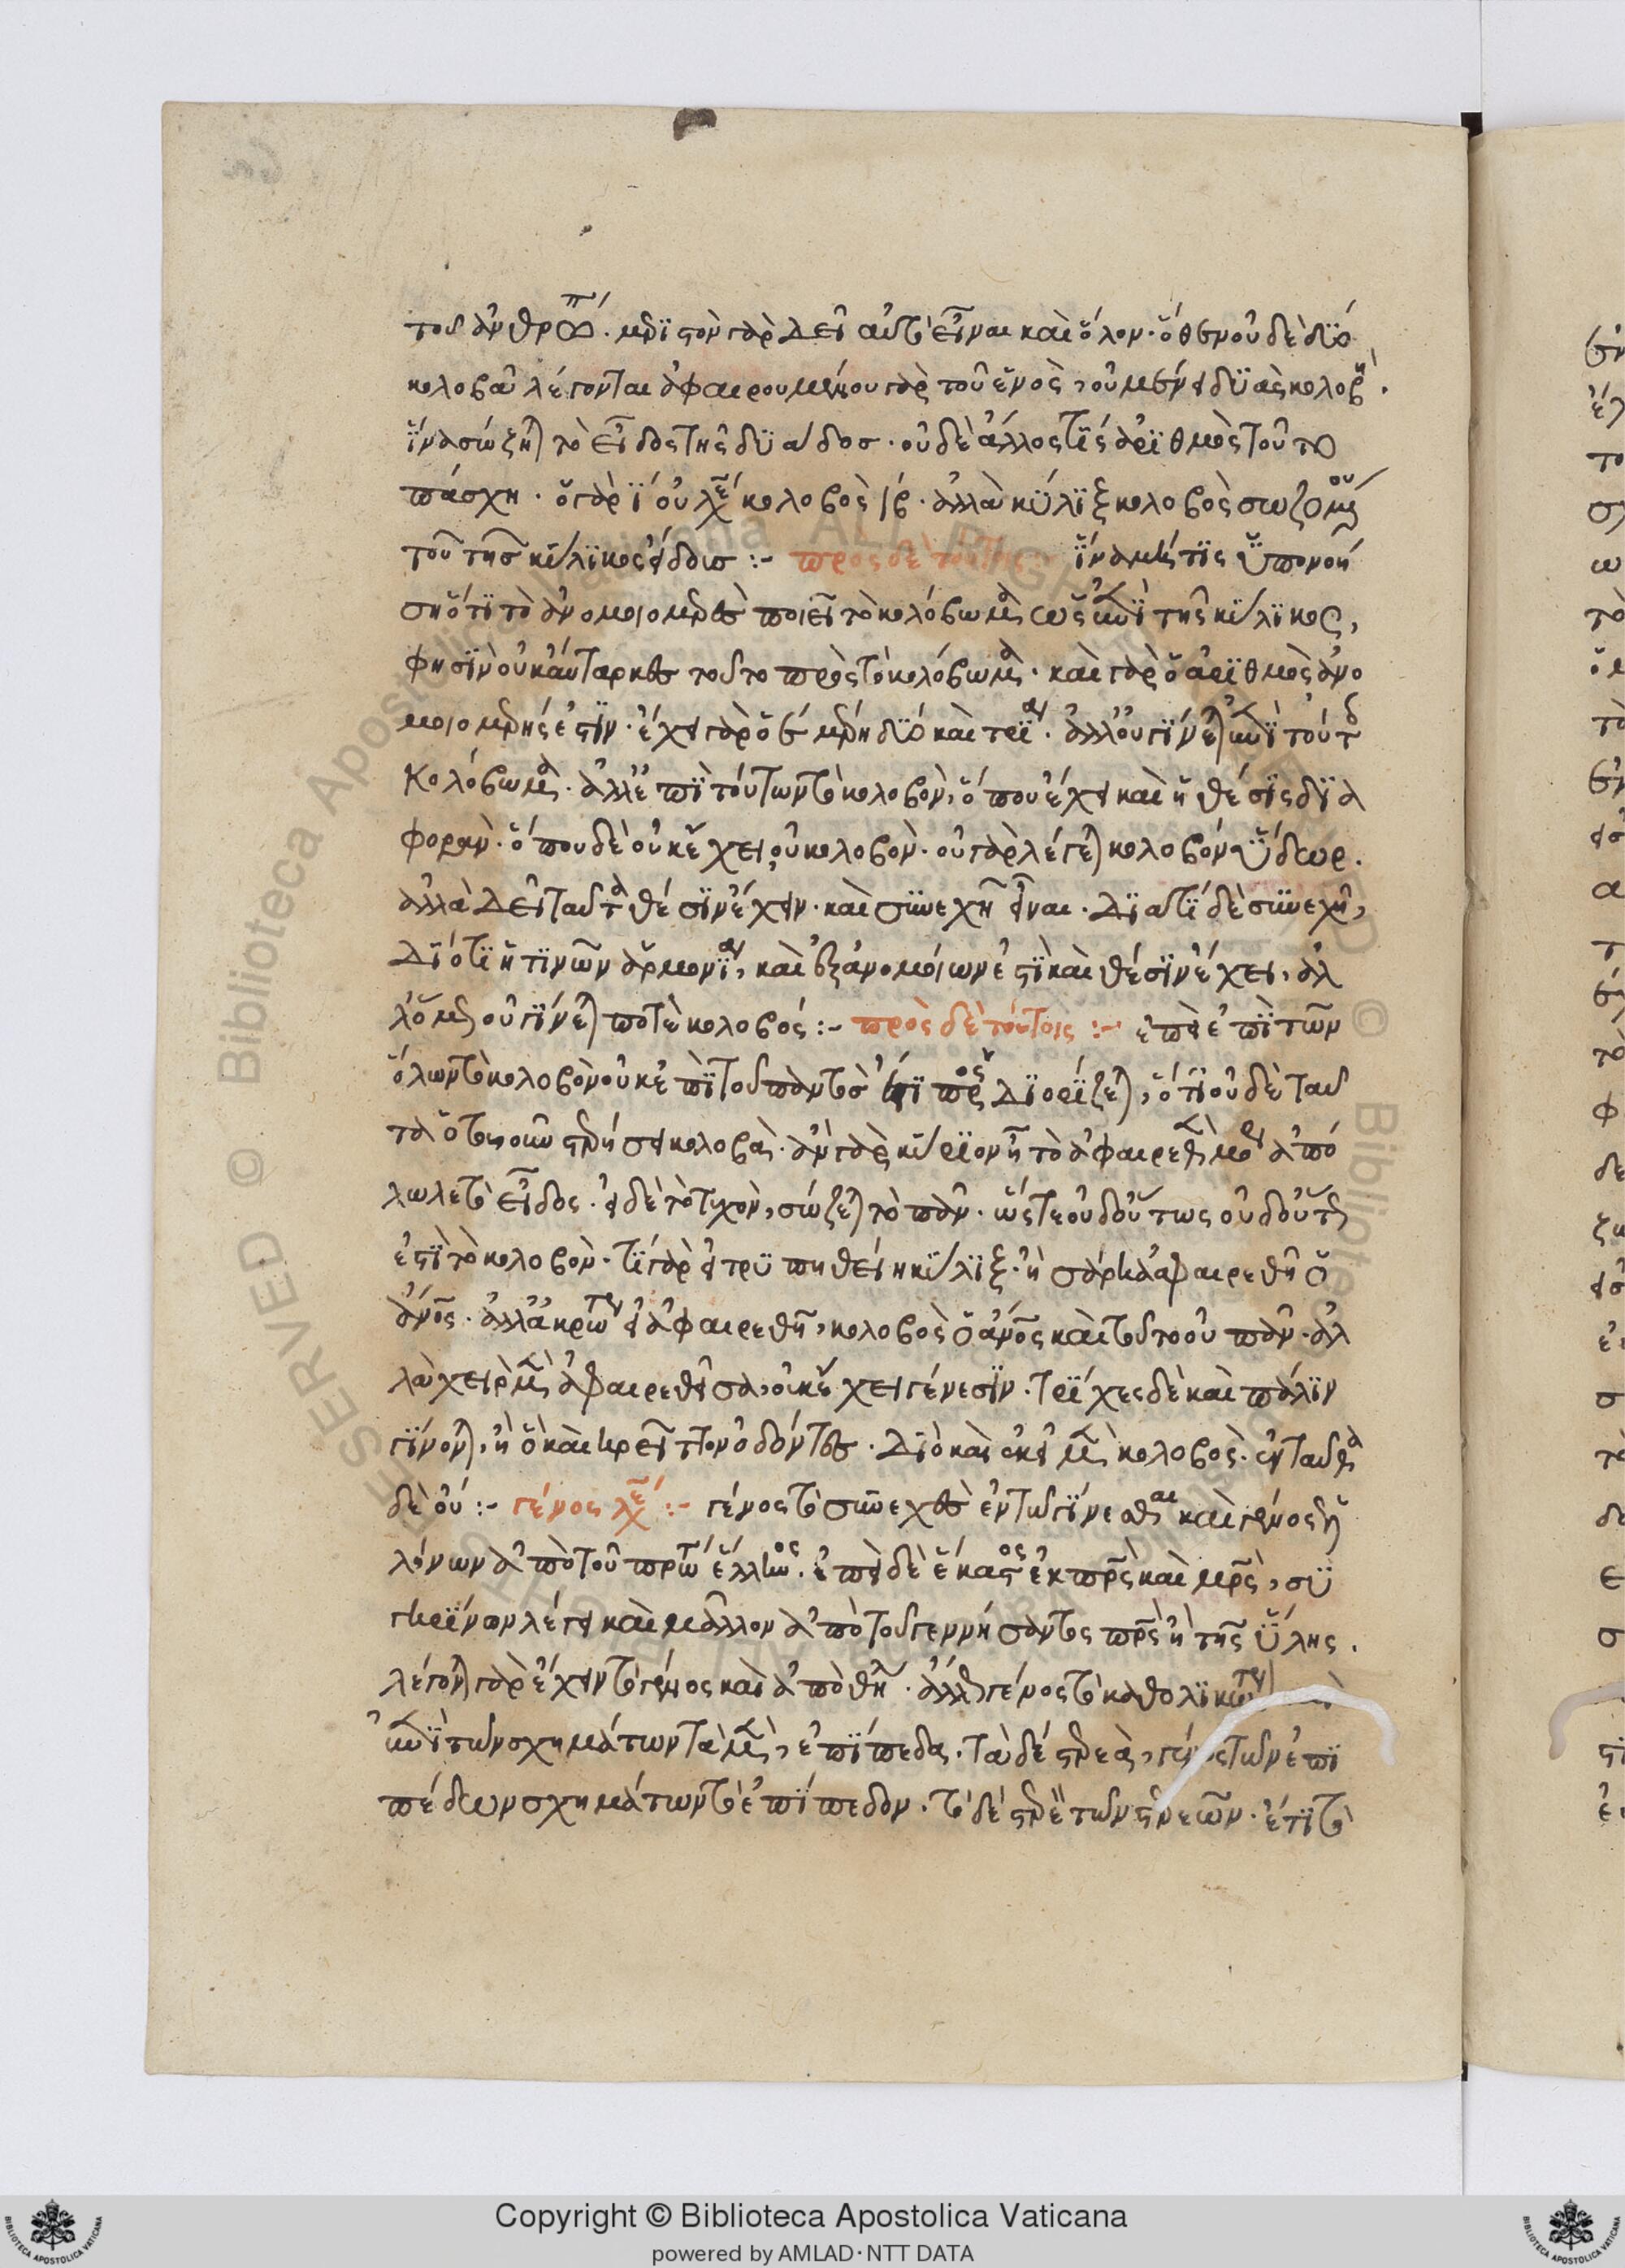 τοῦ ἀνθρώπου. μεριστὸν γὰρ δεῖ αὐτὸ εἶναι καὶ ὅλον. ὅθεν οὐδὲ δύο
κολοβαὶ λέγονται ἀφαιρουμένου γὰρ τοῦ ἑνὸς, οὐ μένει δυὰς κολοβή.
ἵνα σώζηται τὸ εἶδος τῆς δυάδος. οὐδὲ ἄλλος τίς ἀριθμὸς τοῦτο
πάσχη. ὁ γὰρ ι οὐ λέγεται κολοβὸς ιβ. ἀλλὰ κύλιξ κολοβὸς σωζομένου
τοῦ τῆς κύλικος εἴδους :- πρὸς δὲ τούτοις ἵνα μή τις ὑπονοή
ση ὅτι τὸ ἀνομοιομερὲς ποιεῖ τὸ κολόβωμα ὡς ἐπὶ τῆς κύλικος,
φησὶν οὐκ αὔταρκες τοῦτο πρὸς τὸ κολόβωμα. καὶ γὰρ ὁ ἀριθμὸς ἀνο
μοιομερής ἐστιν. ἔχει γὰρ ὁ ε μέρη δύο καὶ τρία. ἀλλ' οὐ γίνεται ἐπὶ τούτου
κολόβωμα. ἀλλ' ἐπὶ τούτων τὸ κολοβὸν, ὅπου ἔχει καὶ ἡ θέσις δια
φοράν. ὅπου δὲ οὐκ ἔχει, οὐ κολοβόν. οὐ γὰρ λέγεται κολοβόν ὕδωρ.
ἀλλὰ δεῖ ταῦτα θέσιν ἔχειν. καὶ συνεχῆ εἶναι. διατί δὲ συνεχῆ,
διότι ἥ τινῶν ἁρμονία, καὶ ἐξ ἀνομοίων ἐστὶ καὶ θέσιν ἔχει, ἀλ
λ' ὅμως οὐ γίνεται ποτὲ κολοβός :- πρὸς δὲ τούτοις :- ἐπεὶ ἐπὶ τῶν
ὅλων τὸ κολοβὸν οὐκ ἐπὶ τοῦ παντὸς διορίζεται, ὅτι οὐδὲ ταῦ
τα ὁτηοῦν στερήσει κολοβὰ. ἂν γὰρ κύριον ἦ τὸ ἀφαιρεθὲν μόριον ἀπό
λωλε τὸ εἶδος. εἰ δὲ τὸ τυχὸν, σώζεται τὸ πᾶν. ὥστε οὐδ' οὕτως
ἐστὶ τὸ κολοβὸν. τί γὰρ εἰ τρυπηθείη κύλιξ. ἢ σάρκα ἀφαιρεθῆ ὁ
ἄνος. ἀλλ' ἀκρωτήριον εἰ ἀφαιρεθῆ, κολοβὸς ὁ ἄνος καὶ τοῦτο οὐ πᾶν. ἀλ
λὰ χεὶρ μὲν ἀφαιρεθεῖσα, οὐκ ἔχει γένεσιν. τρίχες δὲ καὶ πάλιν
γίνονται, ἢ ὁ καὶ κρεῖττον ὀδόντες. διὸ καὶ ἐκεῖ μὲν κολοβὸς. ἐνταῦθα
δὲ οὐ :- γένος λέγεται :- γένος τὸ συνεχὲς ἐν τῶ γίνεσθαι καὶ γένος ἑλ
λήνων ἀπὸ τοῦ πρώτου ἕλληνος. ἐπεὶ δὲ ἕκαστος ἐκ πρς καὶ μρς, συ
γκρίνων λέγει καὶ μᾶλλον ἀπὸ τοῦ γεννήσαντος πρς ἢ τῆς ὕλης.
λέγονται γὰρ ἔχειν τὸ γένος καὶ ἀπὸ θη. ἀλλὰ γένος τὸ καθολικώτερον
ἐπὶ τῶν σχημάτων τὰ μὲν, ἐπίπεδα. τὰ δὲ στερεὰ, γένος τῶν ἐπι
πέδων σχημάτων τὸ ἐπίπεδον. τὸ δὲ στερεὸν τῶν στερεῶν. ἔτι τὸ
Copyright © Biblioteca Apostolica Vaticana
powered by AMLAD·NTT DATA